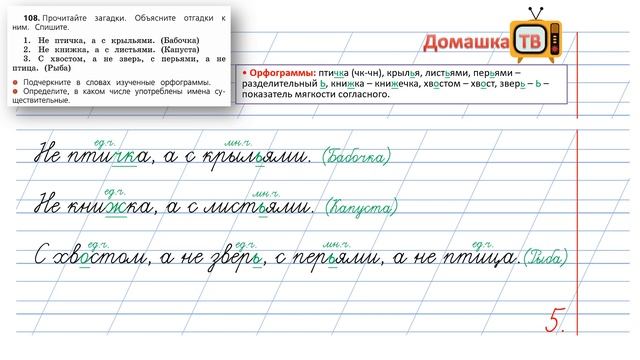 108. Прочитайте загадки. Объясните отгадки к
ним. Спишите.
1. Не птичка, а с крыльями. (Бабочка)
2. Не книжка, а с листьями. (Капуста)
3. С хвостом, а не зверь, с перьями, а не
птица. (Рыба)
Подчеркните в словах изученные орфограммы.
Определите, в каком числе употреблены имена су-
ществительные.
Домашка ТВ
• Орфограммы: птичка (чк-чн), крылья, листьями, перьями –
разделительный Ь, книжка – книжечка, хвостом – хвост, зверь – Ь –
показатель мягкости согласного.
ед.ч. мн.ч.
Не птичка, а с крыльями. (Бабочка)
ед.ч. мн.ч.
Не книжка, а с листьями. (Капуста)
ед.ч. ед.ч. мн.ч. ед.ч.
С хвостом, а не зверь, с перьями, а не птица. (Рыба)
5.